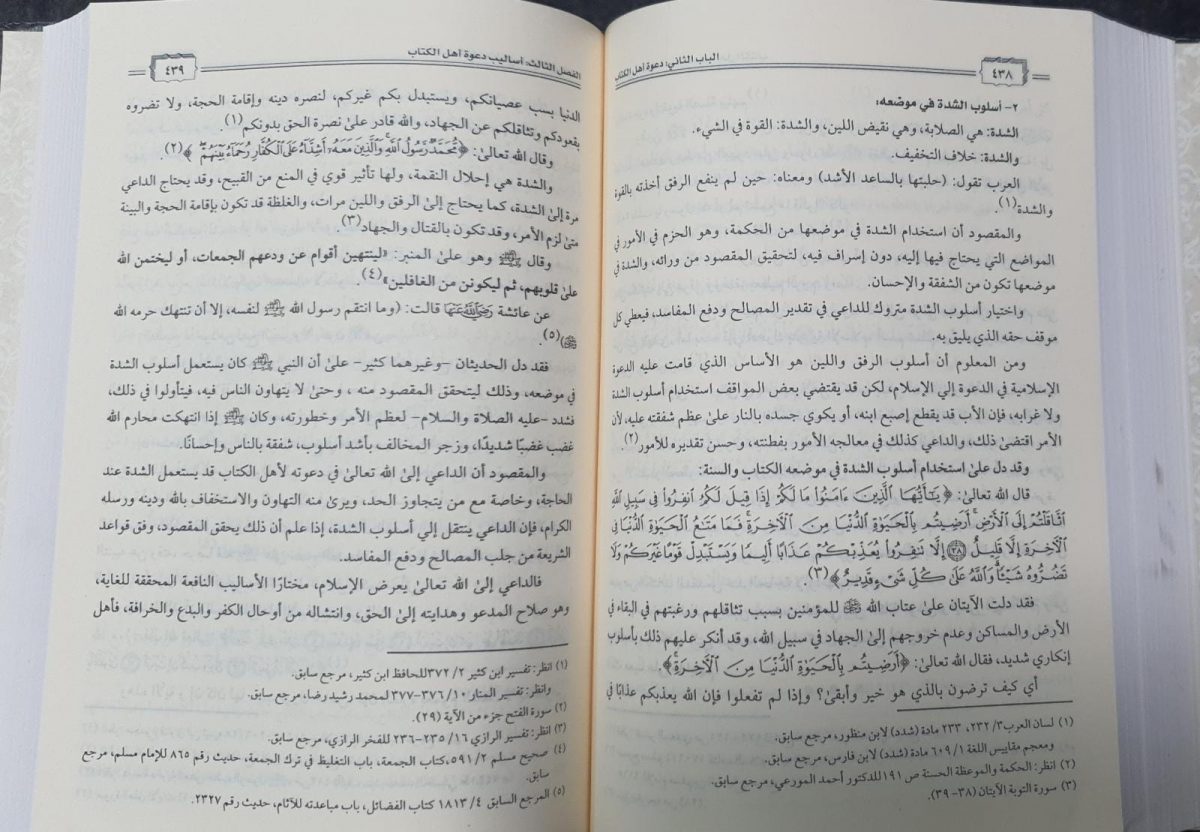 ٤٣٨
الباب الثاني: دعوة أهل الكتاب
٢- أسلوب الشدة في موضعه:
الشدة: هي الصلابة، وهي نقيض اللين، والشدة: القوة في الشيء.
والشدة: خلاف التخفيف.
العرب تقول: (حلبتها بالساعد الأشد) ومعناه: حين لم ينفع الرفق أخذته بالقوة
والشدة(١).
والمقصود أن استخدام الشدة في موضعها من الحكمة، وهو الحزم في الأمور في
المواضع التي يحتاج فيها إليه، دون إسراف فيه، لتحقيق المقصود من ورائه، والشدة في
موضعها تكون من الشفقة والإحسان.
واختيار أسلوب الشدة متروك للداعي في تقدير المصالح ودفع المفاسد، فيعطي كل
موقف حقه الذي يليق به.
ومن المعلوم أن أسلوب الرفق واللين هو الأساس الذي قامت عليه الدعوة
الإسلامية في الدعوة إلى الإسلام، لكن قد يقتضي بعض المواقف استخدام أسلوب الشدة
ولا غرابه، فإن الأب قد يقطع إصبع ابنه، أو يكوي جسده بالنار على عظم شفقته عليه، لأن
الأمر اقتضىٰ ذلك، والداعي كذلك في معالجه الأمور بفطنته، وحسن تقديره للأمور(٢).
وقد دل علىٰ استخدام أسلوب الشدة في موضعه الكتاب والسنة:
قال الله تعالىٰ: ﴿يَٰٓأَيُّهَا ٱلَّذِينَ ءَامَنُوا۟ مَا لَكُمْ إِذَا قِيلَ لَكُمُ ٱنفِرُوا۟ فِى سَبِيلِ ٱللَّهِ
ٱثَّاقَلْتُمْ إِلَى ٱلْأَرْضِ ۚ أَرَضِيتُم بِٱلْحَيَوٰةِ ٱلدُّنْيَا مِنَ ٱلْأَخِرَةِ ۚ فَمَا مَتَٰعُ ٱلْحَيَوٰةِ ٱلدُّنْيَا فِى
ٱلْأَخِرَةِ إِلَّا قَلِيلٌ ٣٨ إِلَّا تَنفِرُوا۟ يُعَذِّبْكُمْ عَذَابًا أَلِيمًا وَيَسْتَبْدِلْ قَوْمًا غَيْرَكُمْ وَلَا
تَضُرُّوهُ شَيْـًٔا ۗ وَٱللَّهُ عَلَىٰ كُلِّ شَىْءٍ قَدِيرٌ﴾(٣).
فقد دلت الآيتان علىٰ عتاب الله ﷻ للمؤمنين بسبب تثاقلهم ورغبتهم في البقاء في
الأرض والمساكن وعدم خروجهم إلىٰ الجهاد في سبيل الله، وقد أنكر عليهم ذلك بأسلوب
إنكاري شديد، فقال الله تعالىٰ: ﴿أَرَضِيتُم بِٱلْحَيَوٰةِ ٱلدُّنْيَا مِنَ ٱلْأَخِرَةِ﴾.
أي كيف ترضون بالذي هو خير وأبقىٰ؟ وإذا لم تفعلوا فإن الله يعذبكم عذابًا في
(١) لسان العرب٣/ ٢٣٢، ٢٣٣ مادة (شدد) لابن منظور، مرجع سابق.
ومعجم مقاييس اللغة ١/ ٦٠٩ مادة (شدد) لابن فارس، مرجع سابق.
(٢) انظر: الحكمة والموعظة الحسنة ص ١٩١للدكتور أحمد المورعي، مرجع سابق.
(٣) سورة التوبة الآيتان (٣٨- ٣٩).
الفصل الثالث: أساليب دعوة أهل الكتاب
٤٣٩
الدنيا بسب عصيانكم، ويستبدل بكم غيركم، لنصره دينه وإقامة الحجة، ولا تضروه
بقعودكم وتثاقلكم عن الجهاد، والله قادر علىٰ نصرة الحق بدونكم(١).
وقال الله تعالىٰ: ﴿مُّحَمَّدٌ رَّسُولُ ٱللَّهِ ۚ وَٱلَّذِينَ مَعَهُۥٓ أَشِدَّآءُ عَلَى ٱلْكُفَّارِ رُحَمَآءُ بَيْنَهُمْ﴾(٢).
والشدة هي إحلال النقمة، ولها تأثير قوي في المنع من القبيح، وقد يحتاج الداعي
مرة إلىٰ الشدة، كما يحتاج إلىٰ الرفق واللين مرات، والغلظة قد تكون بإقامة الحجة والبينة
متىٰ لزم الأمر، وقد تكون بالقتال والجهاد(٣).
وقال ﷺ وهو علىٰ المنبر: «لينتهين أقوام عن ودعهم الجمعات، أو ليختمن الله
علىٰ قلوبهم، ثم ليكونن من الغافلين»(٤).
عن عائشة رضي الله عنها قالت: (وما انتقم رسول الله ﷺ لنفسه، إلا أن تنتهك حرمه الله
ﷻ)(٥).
فقد دل الحديثان -وغيرهما كثير- علىٰ أن النبي ﷺ كان يستعمل أسلوب الشدة
في موضعه، وذلك ليتحقق المقصود منه ، وحتىٰ لا يتهاون الناس فيه، فيتأولوا في ذلك،
فشدد -عليه الصلاة والسلام- لعظم الأمر وخطورته، وكان ﷺ إذا انتهكت محارم الله
غضب غضبًا شديدًا، وزجر المخالف بأشد أسلوب، شفقة بالناس وإحسانًا.
والمقصود أن الداعي إلىٰ الله تعالىٰ في دعوته لأهل الكتاب قد يستعمل الشدة عند
الحاجة، وخاصة مع من يتجاوز الحد، ويرىٰ منه التهاون والاستخفاف بالله ودينه ورسله
الكرام، فإن الداعي ينتقل إلي أسلوب الشدة، إذا علم أن ذلك يحقق المقصود، وفق قواعد
الشريعة من جلب المصالح ودفع المفاسد.
فالداعي إلىٰ الله تعالىٰ يعرض الإسلام، مختارًا الأساليب النافعة المحققة للغاية،
وهو صلاح المدعو وهدايته إلىٰ الحق، وانتشاله من أوحال الكفر والبدع والخرافة، فأهل
(١) انظر: تفسير ابن كثير ٢/ ٣٧٢للحافظ ابن كثير، مرجع سابق.
وانظر: تفسير المنار ١٠/ ٣٧٦-٣٧٧ لمحمد رشيد رضا، مرجع سابق.
(٢) سورة الفتح جزء من الآية (٢٩).
(٣) انظر: تفسير الرازي ١٦/ ٢٣٥-٢٣٦ للفخر الرازي، مرجع سابق.
(٤) صحيح مسلم ٢/ ٥٩١،كتاب الجمعة، باب التغليظ في ترك الجمعة، حديث رقم ٨٦٥ للإمام مسلم، مرجع
سابق.
(٥) المرجع السابق ٤/ ١٨١٣ كتاب الفضائل، باب مباعدته للآثام، حديث رقم ٢٣٢٧.